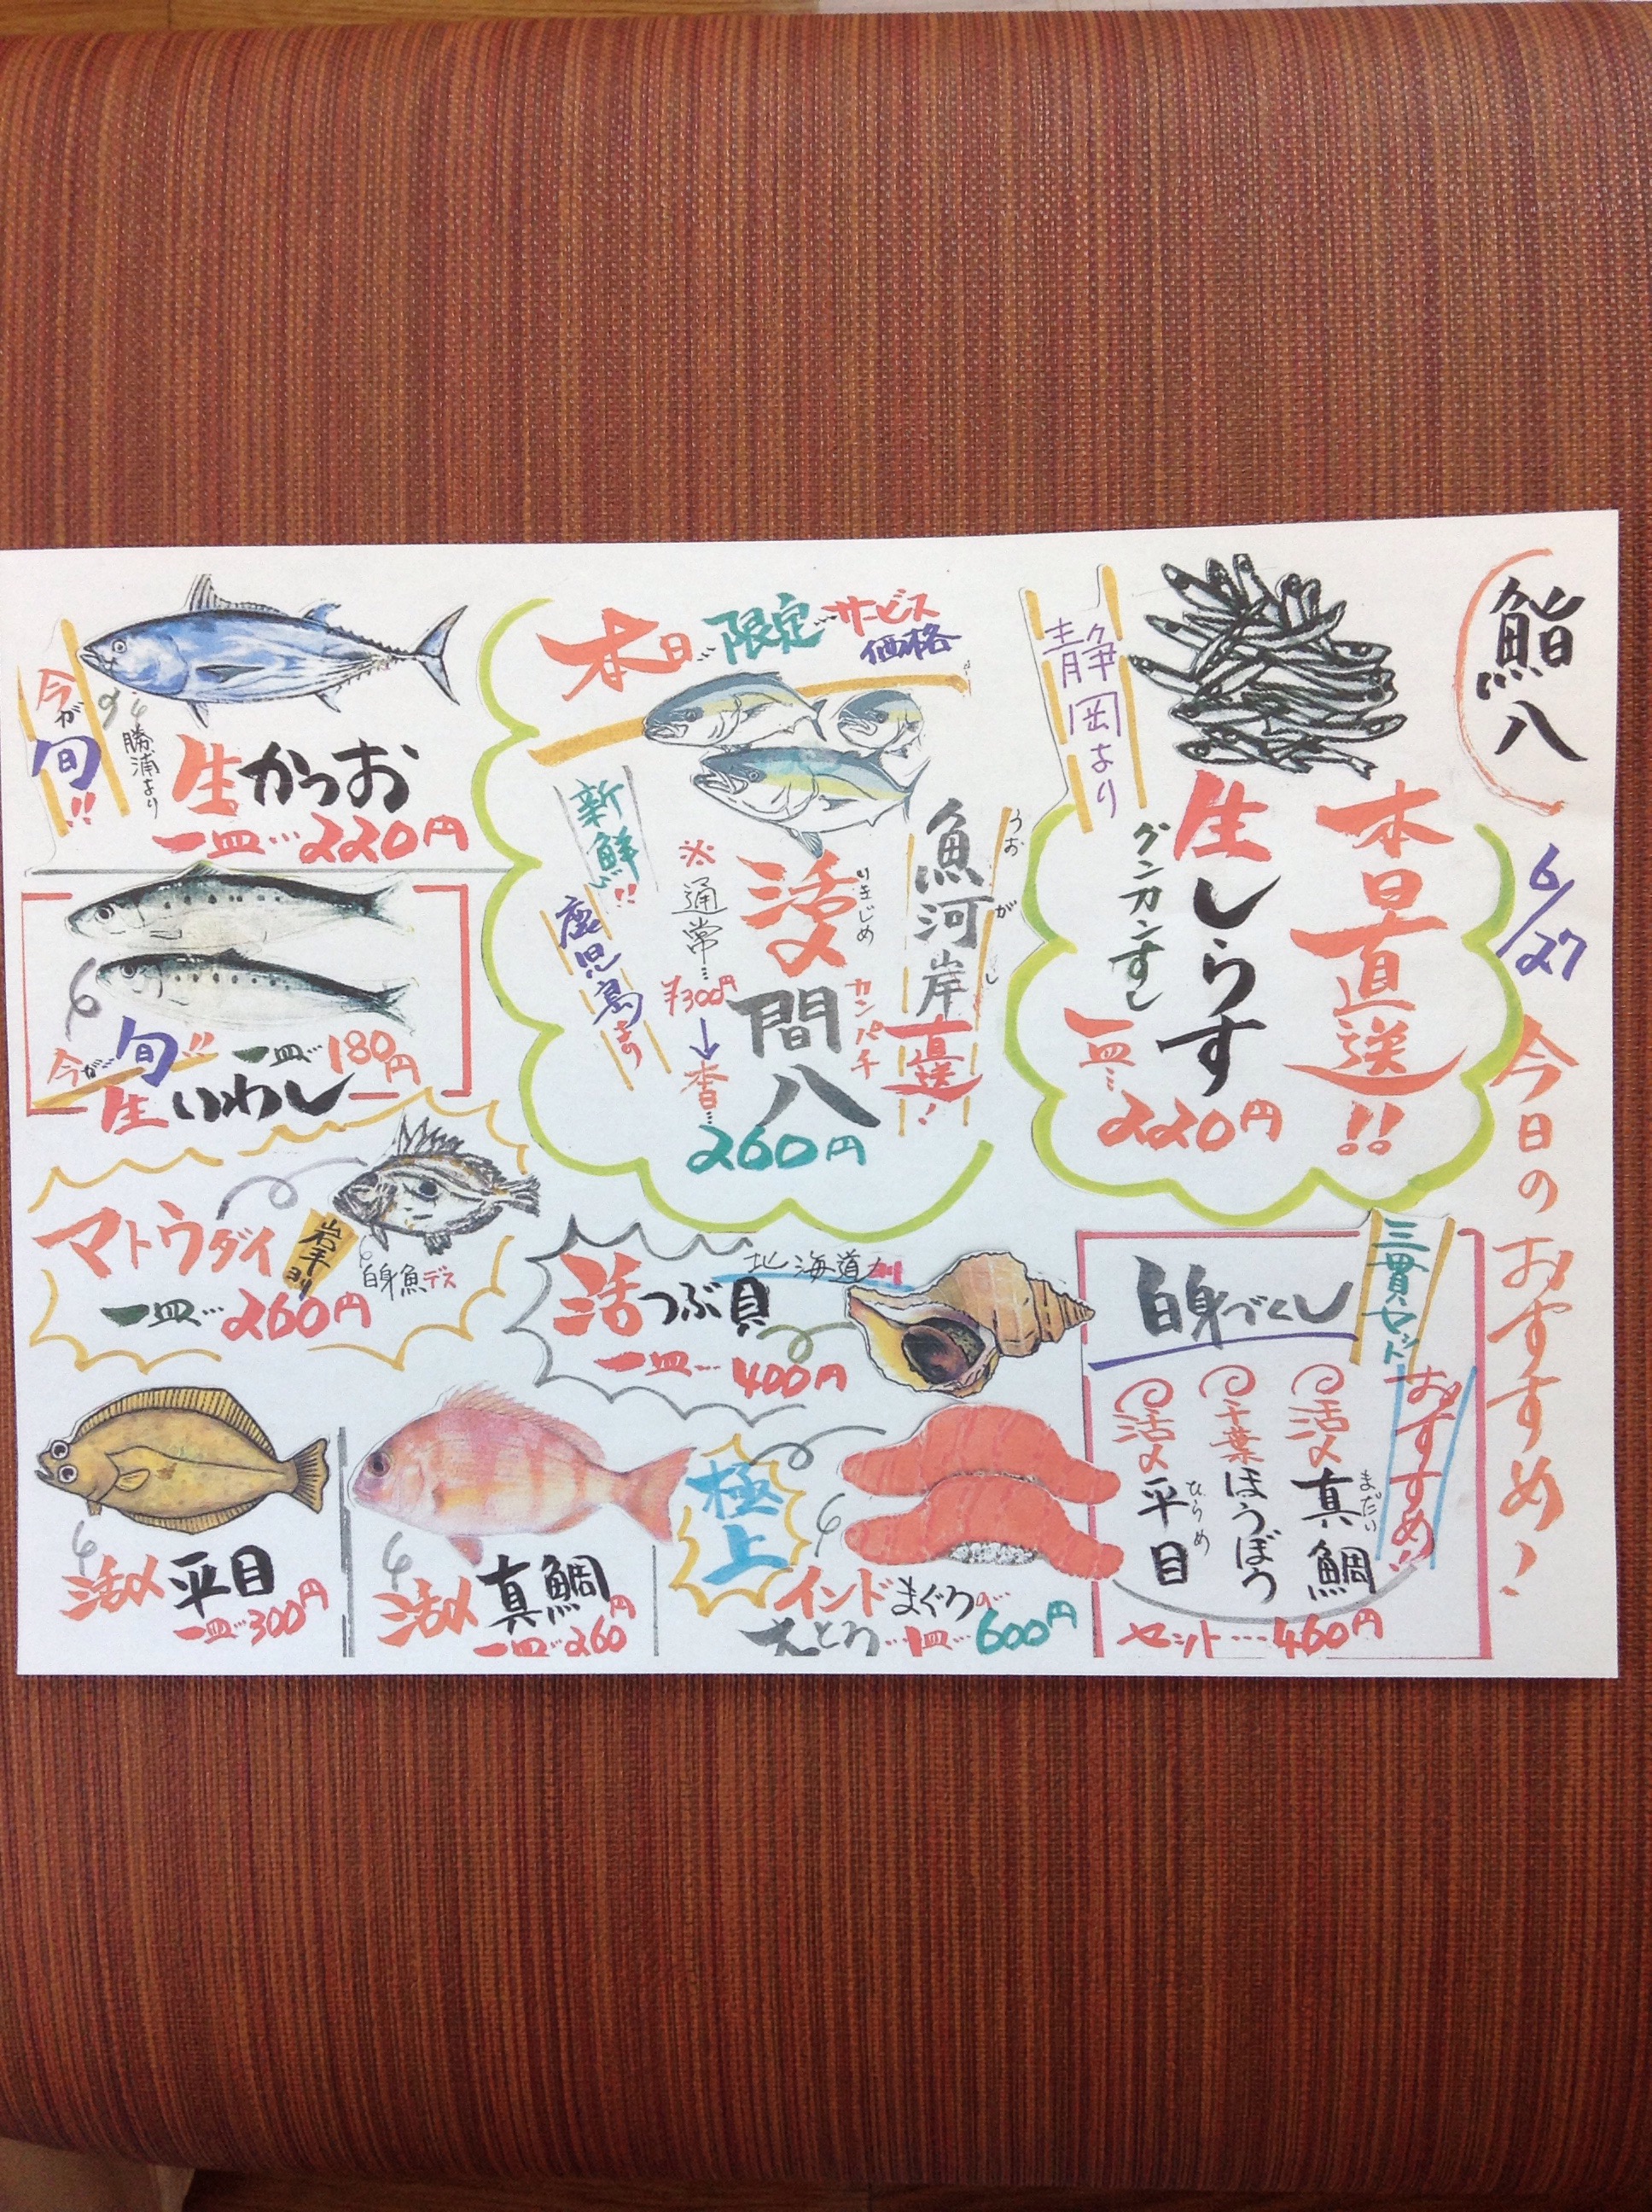 鮨八
6/27
今日のおすすめ!
本日直送!!
生しらす
グンカンすし
一皿…220円
静岡より
本日…限定…サービス
価格
魚河岸直送!
うおがし
活〆
いきじめ
間八
カンパチ
※通常…
¥300円
↓
本日…
260円
新鮮!!
鹿児島より
今が旬!!
勝浦より
生かつお
一皿…220円
今が旬!!
一皿…180円
生いわし
マトウダイ
岩手ヨリ
白身魚デス
一皿…260円
北海道
活つぶ貝
一皿…400円
白身づくし
三貫セット
おすすめ!!
活〆真鯛
まだい
千葉ほうぼう
活〆平目
ひらめ
セット…460円
活〆平目
一皿…300円
活〆真鯛
一皿…260円
極上
インドまぐろの
大とろ…1皿…600円